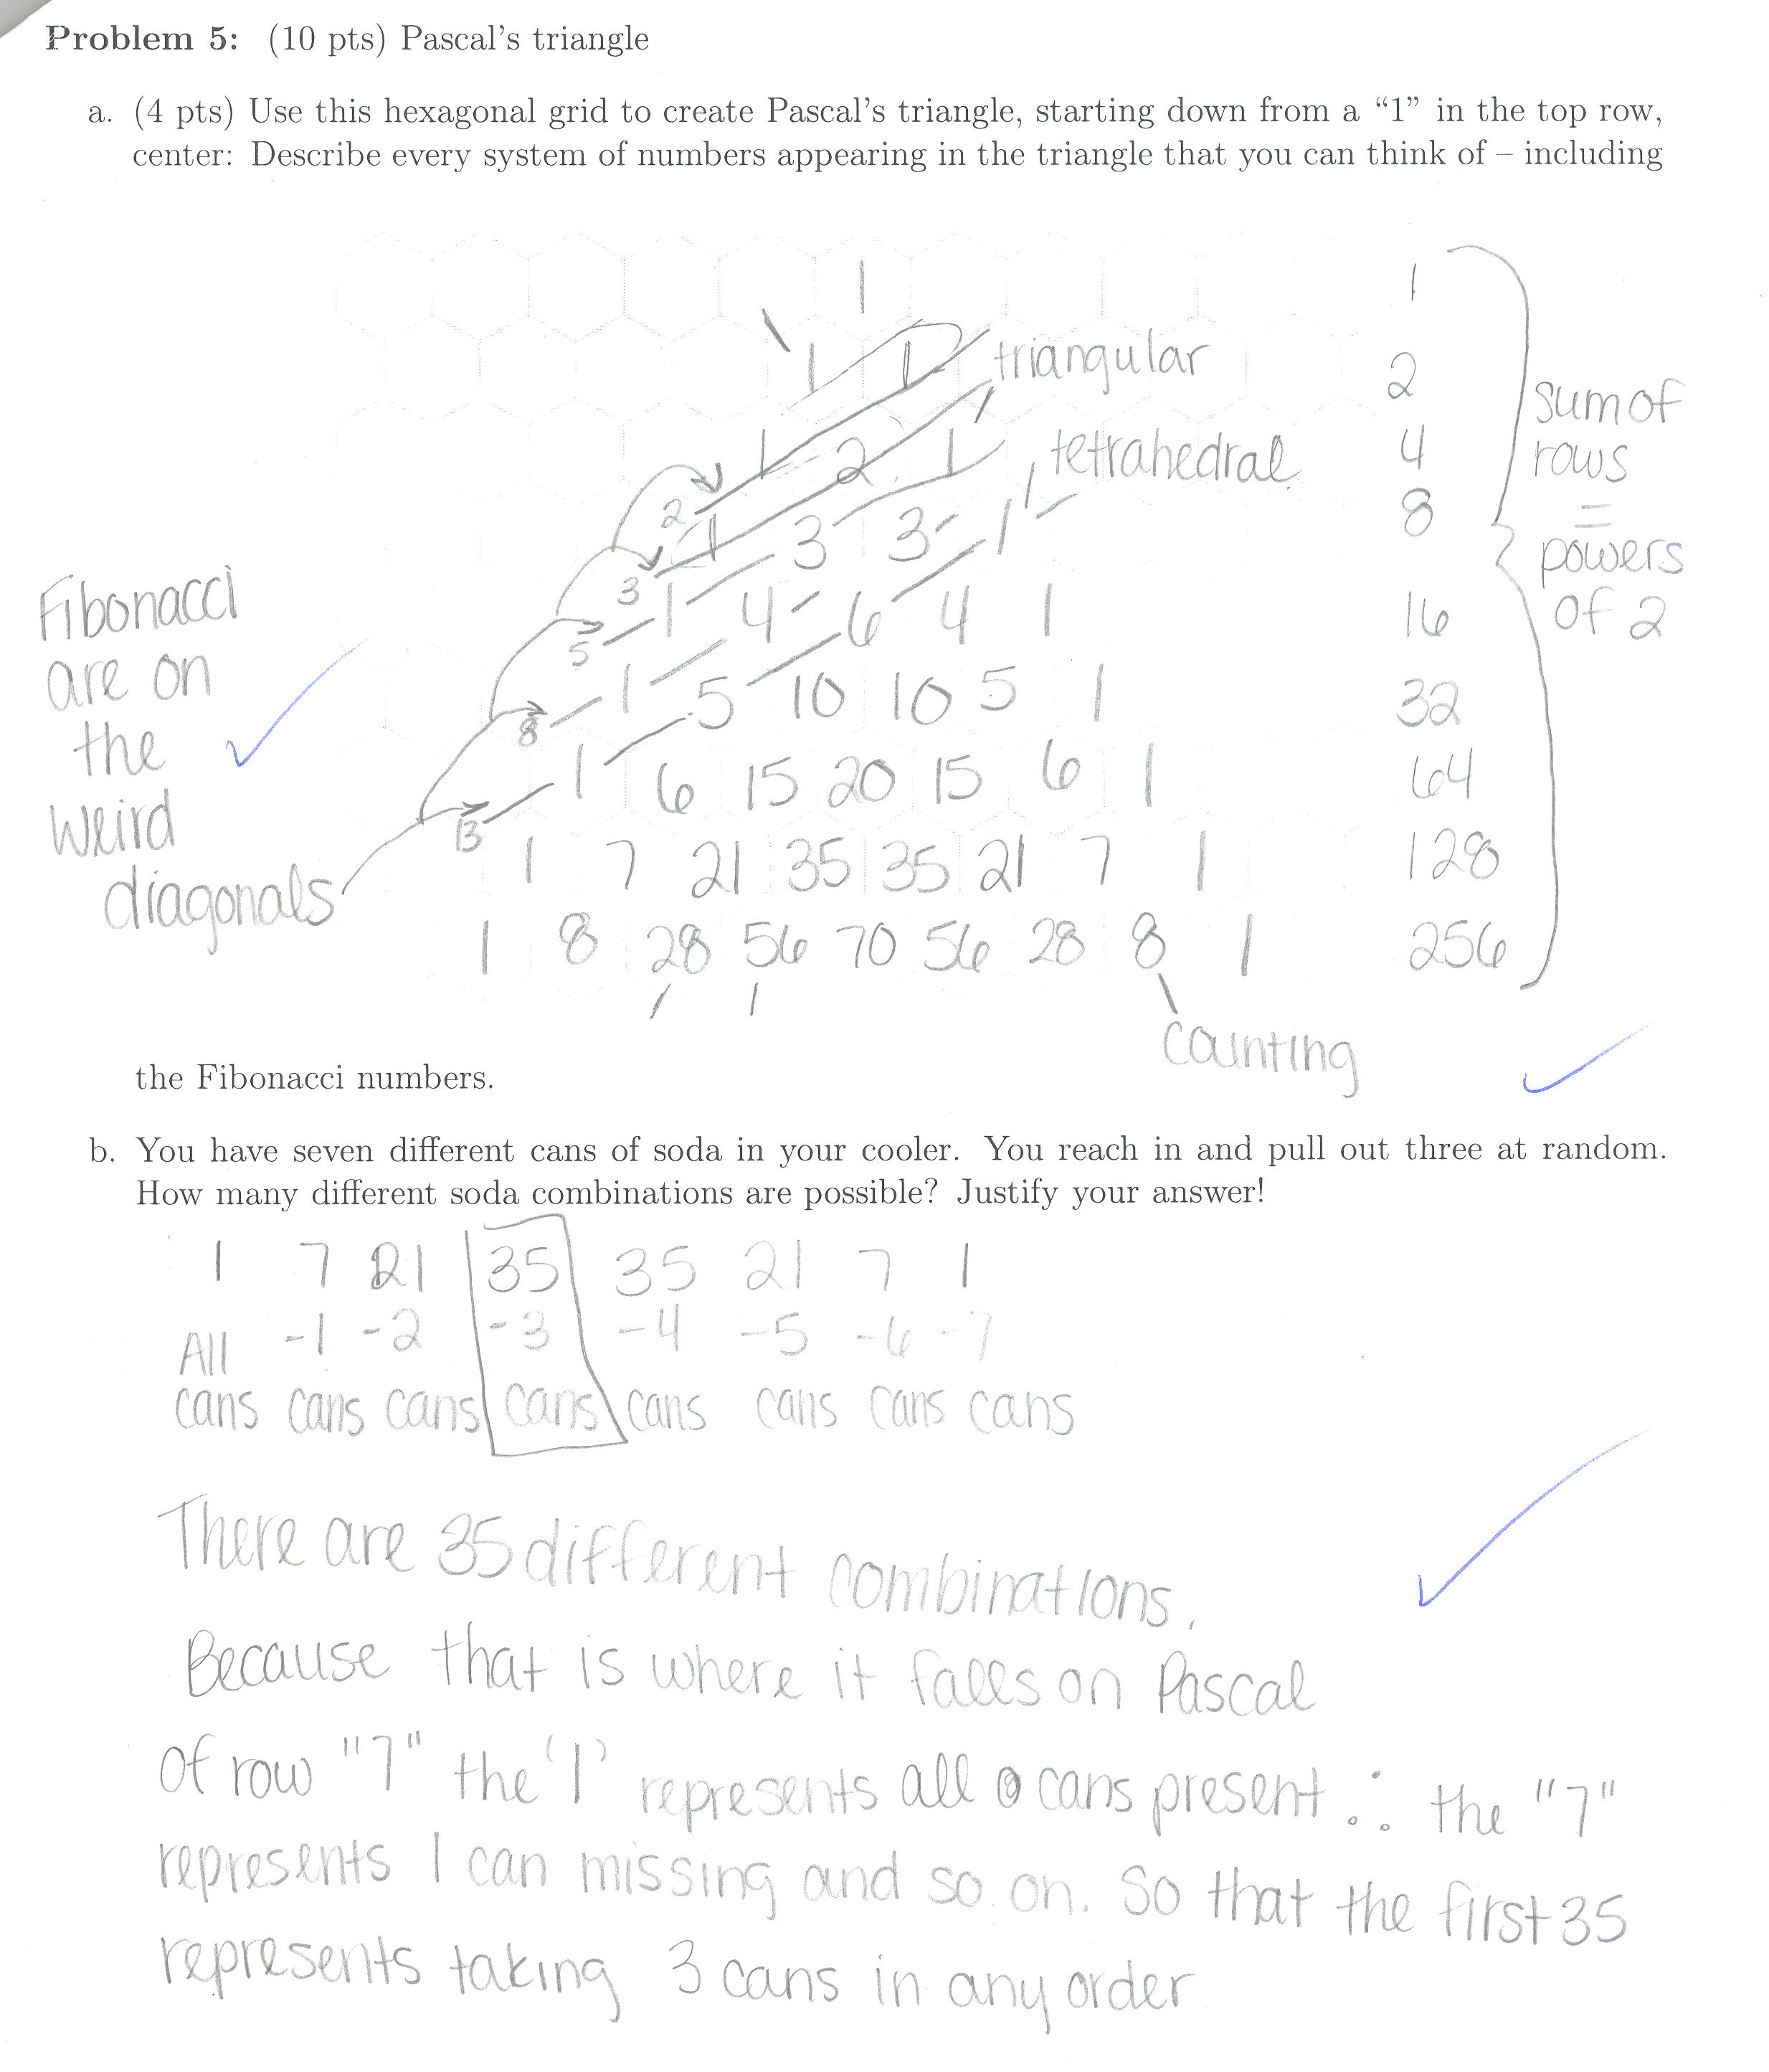 Problem 5: (10 pts) Pascal's triangle
a. (4 pts) Use this hexagonal grid to create Pascal's triangle, starting down from a “1” in the top row,
center: Describe every system of numbers appearing in the triangle that you can think of – including
1
1 1
1 2 1
1 3 3 1
1 4 6 4 1
1 5 10 10 5 1
1 6 15 20 15 6 1
1 7 21 35 35 21 7 1
1 8 28 56 70 56 28 8 1
triangular
tetrahedral
counting
2
3
5
8
13
Fibonacci
are on
the
weird
diagonals
1
2
4
8
16
32
64
128
256
sum of
rows
=
powers
of 2
the Fibonacci numbers.
b. You have seven different cans of soda in your cooler. You reach in and pull out three at random.
How many different soda combinations are possible? Justify your answer!
1 7 21 35 35 21 7 1
All -1 -2 -3 -4 -5 -6 -7
cans cans cans cans cans cans cans cans
There are 35 different combinations.
Because that is where it falls on Pascal
of row "7" the '1' represents all cans present ∴ the "7"
represents 1 can missing and so on. So that the first 35
represents taking 3 cans in any order